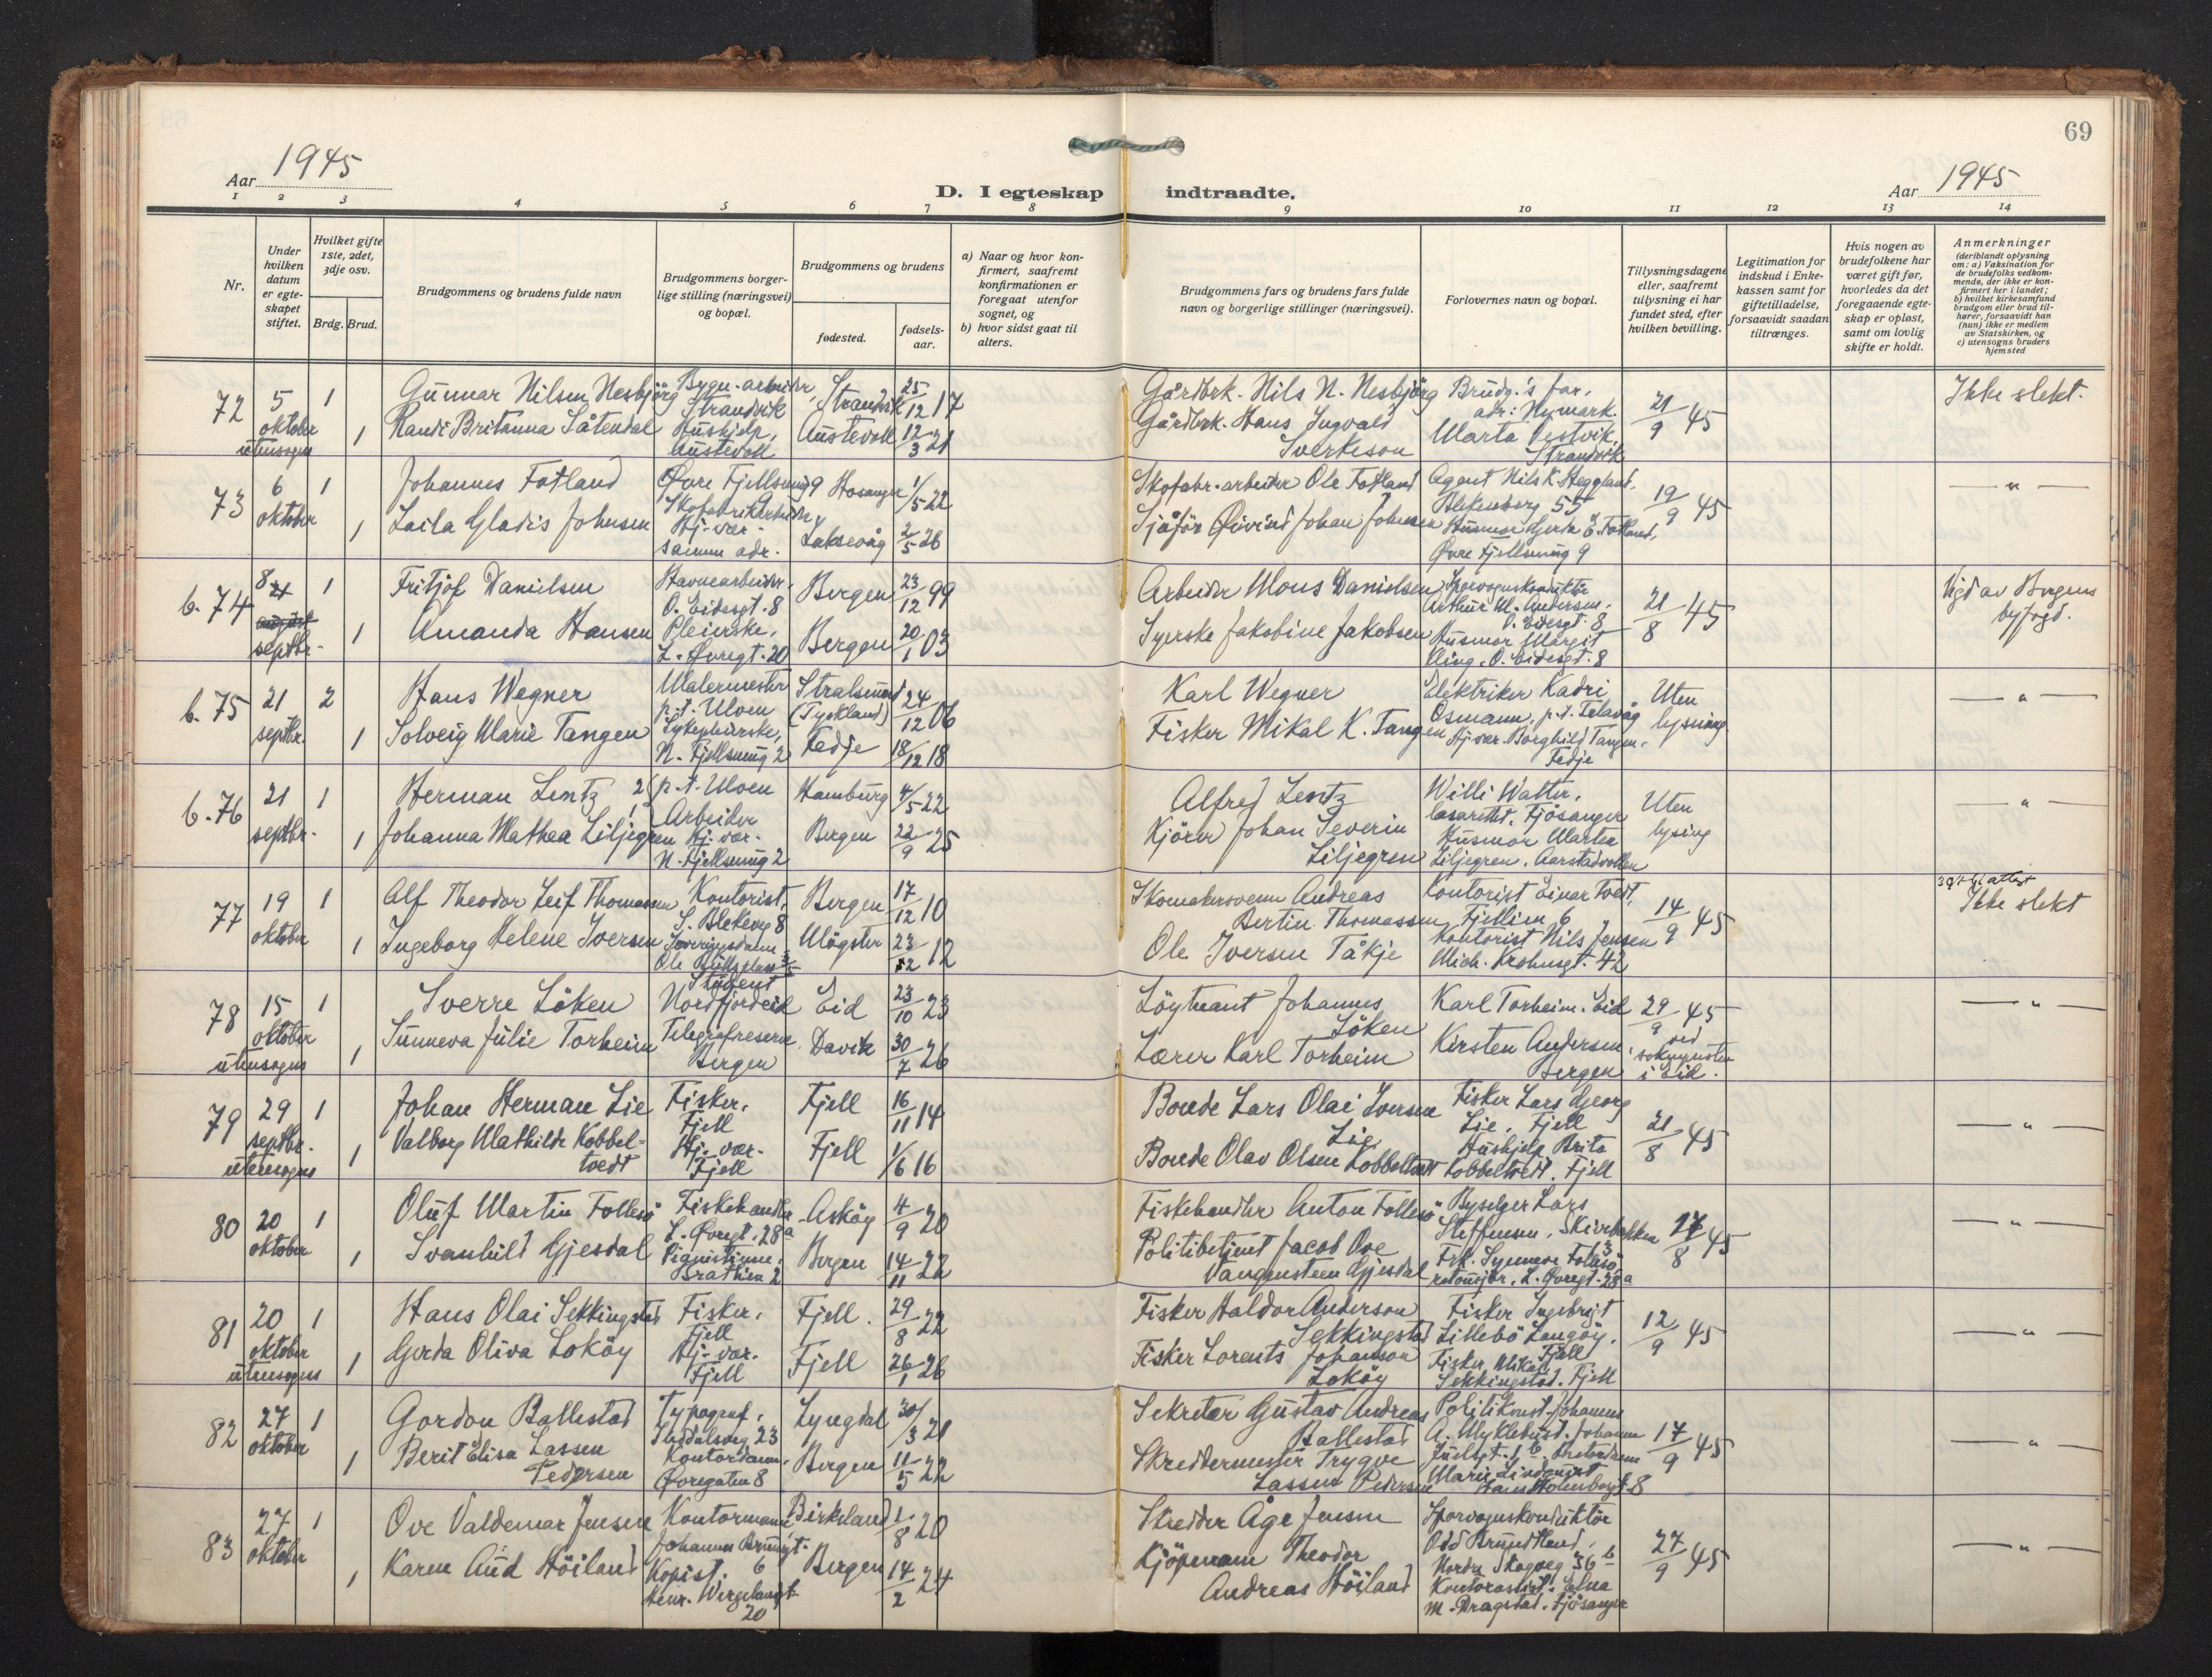 69
Aar 1945
D. I egteskap indtraadte.
Aar 1945
1 2 3 4 5 6 7 8 9 10 11 12 13 14
Nr.
Under hvilken datum er egteskapet stiftet.
Hvilket gifte 1ste, 2det, 3dje osv.
Brdg. Brud.
Brudgommens og brudens fulde navn
Brudgommens borgerlige stilling (næringsvei) og bopæl.
Brudgommens og brudens
fødested.
fødselsaar.
a) Naar og hvor konfirmert, saafremt konfirmationen er foregaat utenfor sognet, og
b) hvor sidst gaat til alters.
Brudgommens fars og brudens fars fulde navn og borgerlige stillinger (næringsvei).
Forlovernes navn og bopæl.
Tillysningsdagene eller, saafremt tillysning ei har fundet sted, efter hvilken bevilling.
Legitimation for indskud i Enkekassen samt for giftetilladelse, forsaavidt saadan tiltrænges.
Hvis nogen av brudefolkene har været gift før, hvorledes da det foregaaende egteskap er opløst, samt om lovlig skifte er holdt.
Anmerkninger (deriblandt oplysning om: a) Vaksination for de brudefolks vedkommende, der ikke er konfirmert her i landet; b) hvilket kirkesamfund brudgom eller brud tilhører, forsaavidt han (hun) ikke er medlem av Statskirken, og c) utensogns bruders hjemsted
72 5 oktober utensogns 1 1
Gunnar Nilsen Nesbjörg
Randi Britanna Såtendal
Bygn.-arbeider, Strandvik
Hushjelp, Austevoll
Strandvik 25/12 17
Austevoll 12/3 21
Gårdbrk. Nils N. Nesbjörg
Gårdbrk. Hans Ingvald Sverkeson
Brudg.'s far, adr: Nymark.
Marta Vestvik, Strandvik
21/9 45
Ikke slekt.
73 6 oktober 1 1
Johannes Fotland
Laila Gladis Johnsen
Øvre Fjellsmug 9
Skofabrikkarbeider
Hj. vær.
samme adr.
Hosanger 1/5 22
Laksevåg 2/5 26
Skofabr.-arbeider Ole Fotland
Sjåför Øivind Johan Johnsen
Agent Nils K. Heggland,
Blekenberg 55
Husmor Gerda E. Fotland,
Øvre Fjellsmug 9
19/9 45
— " —
b. 74 8 septbr. 1 1
Fritjöf Danielsen
Amanda Hansen
Havnearbeider,
O. Eidesgt. 8
Pleierske,
L. Øvregt. 20
Bergen 23/12 99
Bergen 20/1 03
Arbeider Mons Danielsen
Syerske Jakobine Jakobsen
Sporvognskonduktör
Arthur M. Andersen,
O. Eidesgt. 8
Husmor Margit
O. Eidesgt. 8
21/8 45
Vigd av Bergens byfogd.
b. 75 21 septbr. 2 1
Hans Wegner
Solveig Marie Tangen
Malermester
p.t. Ulven
Sykepleierske,
N. Fjellsmug 2
Stralsund (Tyskland) 24/12 06
Fedje 18/12 18
Karl Wegner
Fisker Mikal K. Tangen
Elektriker Kadri
Osmann, p.t. Telavåg
Hj. vær. Borghild Tangen,
Fedje
Uten lysning
— " —
b. 76 21 septbr. 1 1
Herman Lentz
Johanna Mathea Liljegren
p.t. Ulven
Arbeider
Hj. vær.
N. Fjellsmug 2
Hamburg 4/5 22
Bergen 22/9 25
Alfred Lentz
Kjörer Johan Severin Liljegren
Willi Walter,
lasarettet, Fjösanger
Husmor Martha
Liljegren, Aarstadvollen
Uten lysing
— " —
77 19 oktober 1 1
Alf Theodor Leif Thomassen
Ingeborg Helene Iversen
Kontorist,
S. Blekevg 8
Ole Bulls plass
Bergen 17/12 10
Mögster 23/12 12
Skomakersvenn Andreas Bertin Thomassen
Ole Iversen Tåkje
Kontorist Einar Tvedt,
Fjellien 6
Kontorist Nils Jensen
Mich. Krohnsgt. 42
14/9 45
Ikke slekt
78 15 oktober utensogns 1 1
Sverre Löken
Sunneva Julie Torheim
Student
Nordfjordeid
Telegrafreserve
Bergen
Eid 23/10 23
Davik 30/7 26
Löytnant Johannes Löken
Lærer Karl Torheim
Karl Torheim. Eid
Kirsten Andersen, Bergen
29/9 45
ved sokneprsten i Eid.
— " —
79 29 septbr. utensogns 1 1
Johan Herman Lie
Valborg Mathilde Kobbeltvedt
Fisker, Fjell
Hj. vær. Fjell
Fjell 16/11 14
Fjell 1/6 16
Bonde Lars Olai Iversen Lie
Bonde Olav Olsen Kobbeltvedt
Fisker Lars Georg
Lie, Fjell
Hushjelp Brita
Kobbeltvedt. Fjell
21/8 45
— " —
80 20 oktober 1 1
Oluf Martin Follesö
Svanhild Gjesdal
Fiskehandler
L. Øvregt. 28a
Pianistinne,
Brattlien 2
Asköy 4/9 20
Bergen 14/11 22
Fiskehandler Anton Follesö
Politibetjent Jacob Ove Vangensteen Gjesdal
Byselger Lars
Steffensen, Skivebakken 3
Frk. Synneve Follesö
L. Øvregt. 28a
17/8 45
— " —
81 20 oktober utensogns 1 1
Hans Olai Sekkingstad
Gerda Oliva Loköy
Fisker, Fjell
Hj. vær. Fjell
Fjell. 29/8 22
Fjell 26/1 26
Fisker Haldor Anderson Sekkingstad
Fisker Lorents Johanson Loköy
Fisker Ingebrigt
Lillebö Langöy,
Fjell
Fisker Mikal
Sekkingstad. Fjell
12/9 45
— " —
82 27 oktober 1 1
Gordon Ballestad
Berit Elisa Lassen Pedersen
Typograf,
Ibsdalsveg 23
Kontordame,
Øvregaten 8
Lyngdal 30/3 21
Bergen 11/5 22
Sekretær Gustav Andreas Ballestad
Skreddermester Trygve Lassen Pedersen
Politikonst. Johannes
A. Myklebust. Johannes
Juelsgt. 1b. Kontordame
Marie Lindquist
Hans Holmboegt. 8
17/9 45
— " —
83 27 oktober 1 1
Ove Valdemar Jensen
Karen Aud Höiland
Kontormann
Johannes Brunsgt. 6
Kopist.
Henr. Wergelandsgt. 20
Birkeland 1/8 20
Bergen 14/2 24
Skredder Åge Jensen
Kjöpmann Theodor Andreas Höiland
Sporvognskonduktör
Odd Brundtland,
Nordre Skogveg 36b
Kontorassist. Elna
M. Dragstad. Fjösanger
27/9 45
— " —